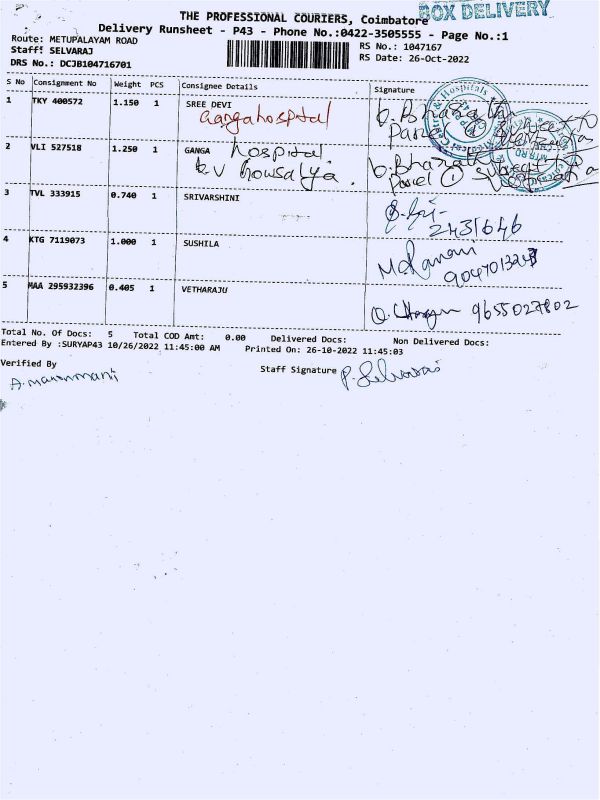 BOX DELIVERY
THE PROFESSIONAL COURIERS, Coimbatore
Delivery Runsheet - P43 - Phone No.:0422-3505555 - Page No.:1
Route: METUPALAYAM ROAD
RS No.: 1047167
Staff: SELVARAJ
RS Date: 26-Oct-2022
DRS No.: DCJB104716701
S No Consignment No Weight PCS Consignee Details Signature
1 TKY 400572 1.150 1 SREE DEVI
Ganga hospital
b. Bharath
Parcel ①
2 VLI 527518 1.250 1 GANGA hospital
K V Kowsalya.
b. Bharath
Parcel ①
3 TVL 333915 0.740 1 SRIVARSHINI
2431646
4 KTG 7119073 1.000 1 SUSHILA
5 MAA 295932396 0.405 1 VETHARAJU
9655027802
Total No. Of Docs: 5 Total COD Amt: 0.00 Delivered Docs: Non Delivered Docs:
Entered By :SURYAP43 10/26/2022 11:45:00 AM Printed On: 26-10-2022 11:45:03
Verified By Staff Signature P. Selvaraj